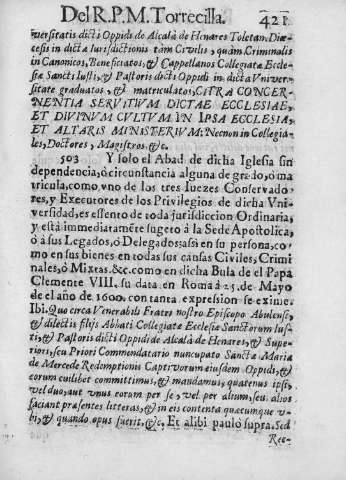 Del R. P. M. Torrecilla. 421
uersitatis dicti Oppidi de Alcalà de Henares Toletan. Diœ-
cesis in dictæ Iurisdictionis tàm Civilis, quàm Criminalis
in Canonicos, Beneficiatos, & Cappellanos Collegiatæ Eccle-
siæ Sancti Iusti, & Pastoris dicti Oppidi in dicta Vniver-
sitate graduatos, & matriculatos, CITRA CONCER-
NENTIA SERVITVM DICTAE ECCLESIAE,
ET DIVINVM CVLTVM IN IPSA ECCLESIA,
ET ALTARIS MINISTERIVM; Necnon in Collegia-
les, Doctores, Magistros, &c.
503 Y solo el Abad de dicha Iglesia sin
dependencia, ò circunstancia alguna de grado, ò ma-
tricula, como vno de los tres Iuezes Conservado-
res, y Executores de los Privilegios de dicha Vni-
versidad, es essento de toda jurisdiccion Ordinaria,
y està immediatamẽte sugeto à la Sede Apostolica,
ò à sus Legados, ò Delegados; assi en su persona, co-
mo en sus bienes en todas sus causas Civiles, Crimi
nales, ò Mixtas. &c. como en dicha Bula de el Papa
Clemente VIII. su data en Roma à 25. de Mayo
de el año de 1600. con tanta expression se exime.
Ibi. Quo circa Venerabili Fratri nostro Episcopo Abulense,
& dilectis filijs Abbati Collegiatæ Ecclesiæ Sanctorum Iusti,
& Pastoris dicti Oppidi de Alcalà de Henares, & Supe-
riori, seu Priori Commendatario nuncupato Sanctæ Mariæ
de Mercede Redemptionis Captivorum eiusdem Oppidi, &
eorum cuilibet committimus, & mandamus, quatenus ipsi,
vel duo, aut vnus eorum per se, vel per alium, seu alios
faciant præsentes litteras, & in eis contenta quæcumque v-
bi, & quando opus fuerit. &c. Et alibi paulò supra. Sed
Rec-